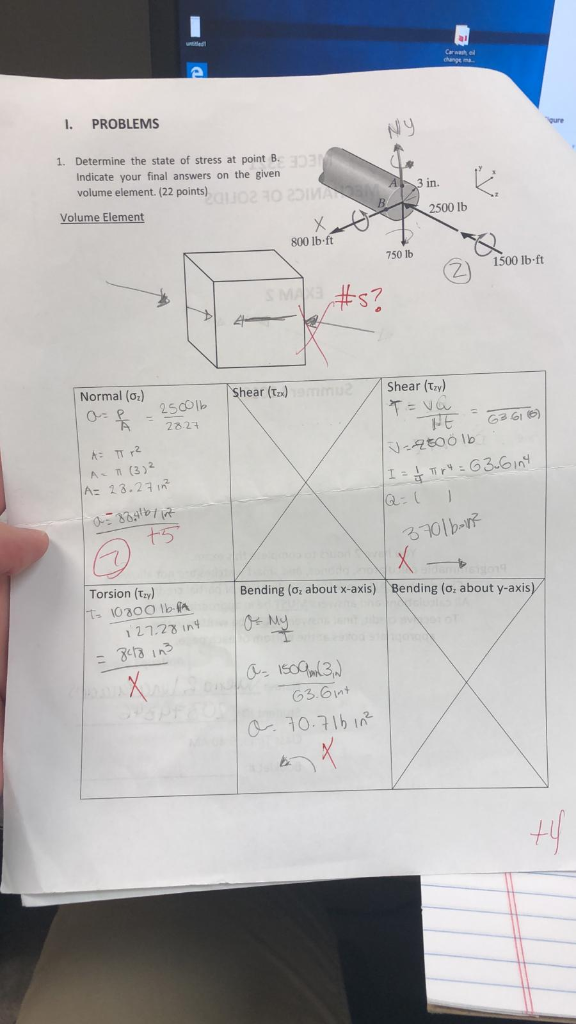 untitled1
Car wash, oil
change, ma...
I. PROBLEMS
1. Determine the state of stress at point B.
Indicate your final answers on the given
volume element. (22 points)
Volume Element
Ny
A
3 in.
B
2500 lb
y
x
z
X
800 lb·ft
750 lb
1500 lb·ft
2
#s?
Normal (σz)
σ = P/A = 2500 lb / 28.27
A = π r²
A = π (3)²
A = 28.27 in²
σ = 88.4 lb/in²
+5
Shear (τzx)
Shear (τzy)
I = 1/4 π r⁴ = 63.6 in⁴
Q =
370 lb in²
X
Torsion (τzy)
T =
127.28 in⁴
= 848 in³
X
Bending (σz about x-axis)
σ = My/I
63.6 in⁴
σ = 70.7 lb in²
X
Bending (σz about y-axis)
+4